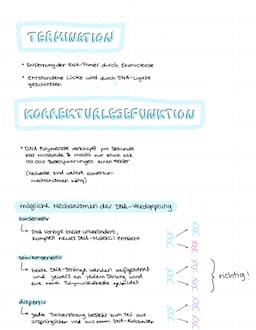 TERMINATION
• Entfernung der RNA-Primer durch Exonuclease
• Entstandene Lücke wird durch DNA-Ligase
geschlossen
KORREKTURLESEFUNKTION
• DNA Polymerase verknüpft pro Sekunde
& macht nur etwa alle
einen Fehler
mögliche Mechanismen der DNA-Verdopplung
konservativ
↳ DNA Vorlage bleibt unverändert,
komplett neues DNA-Molekül entsteht
semikonservativ
↳ beide DNA-Stränge werden aufgetrennt
und jeweils an jedem Strang wird
eine neue Polynukleotidkette gebildet
richtig!
dispersiv
↳ jeder Tochterstrang besteht zum Teil aus
ursprünglichen und aus neuen DNA-Molekülen